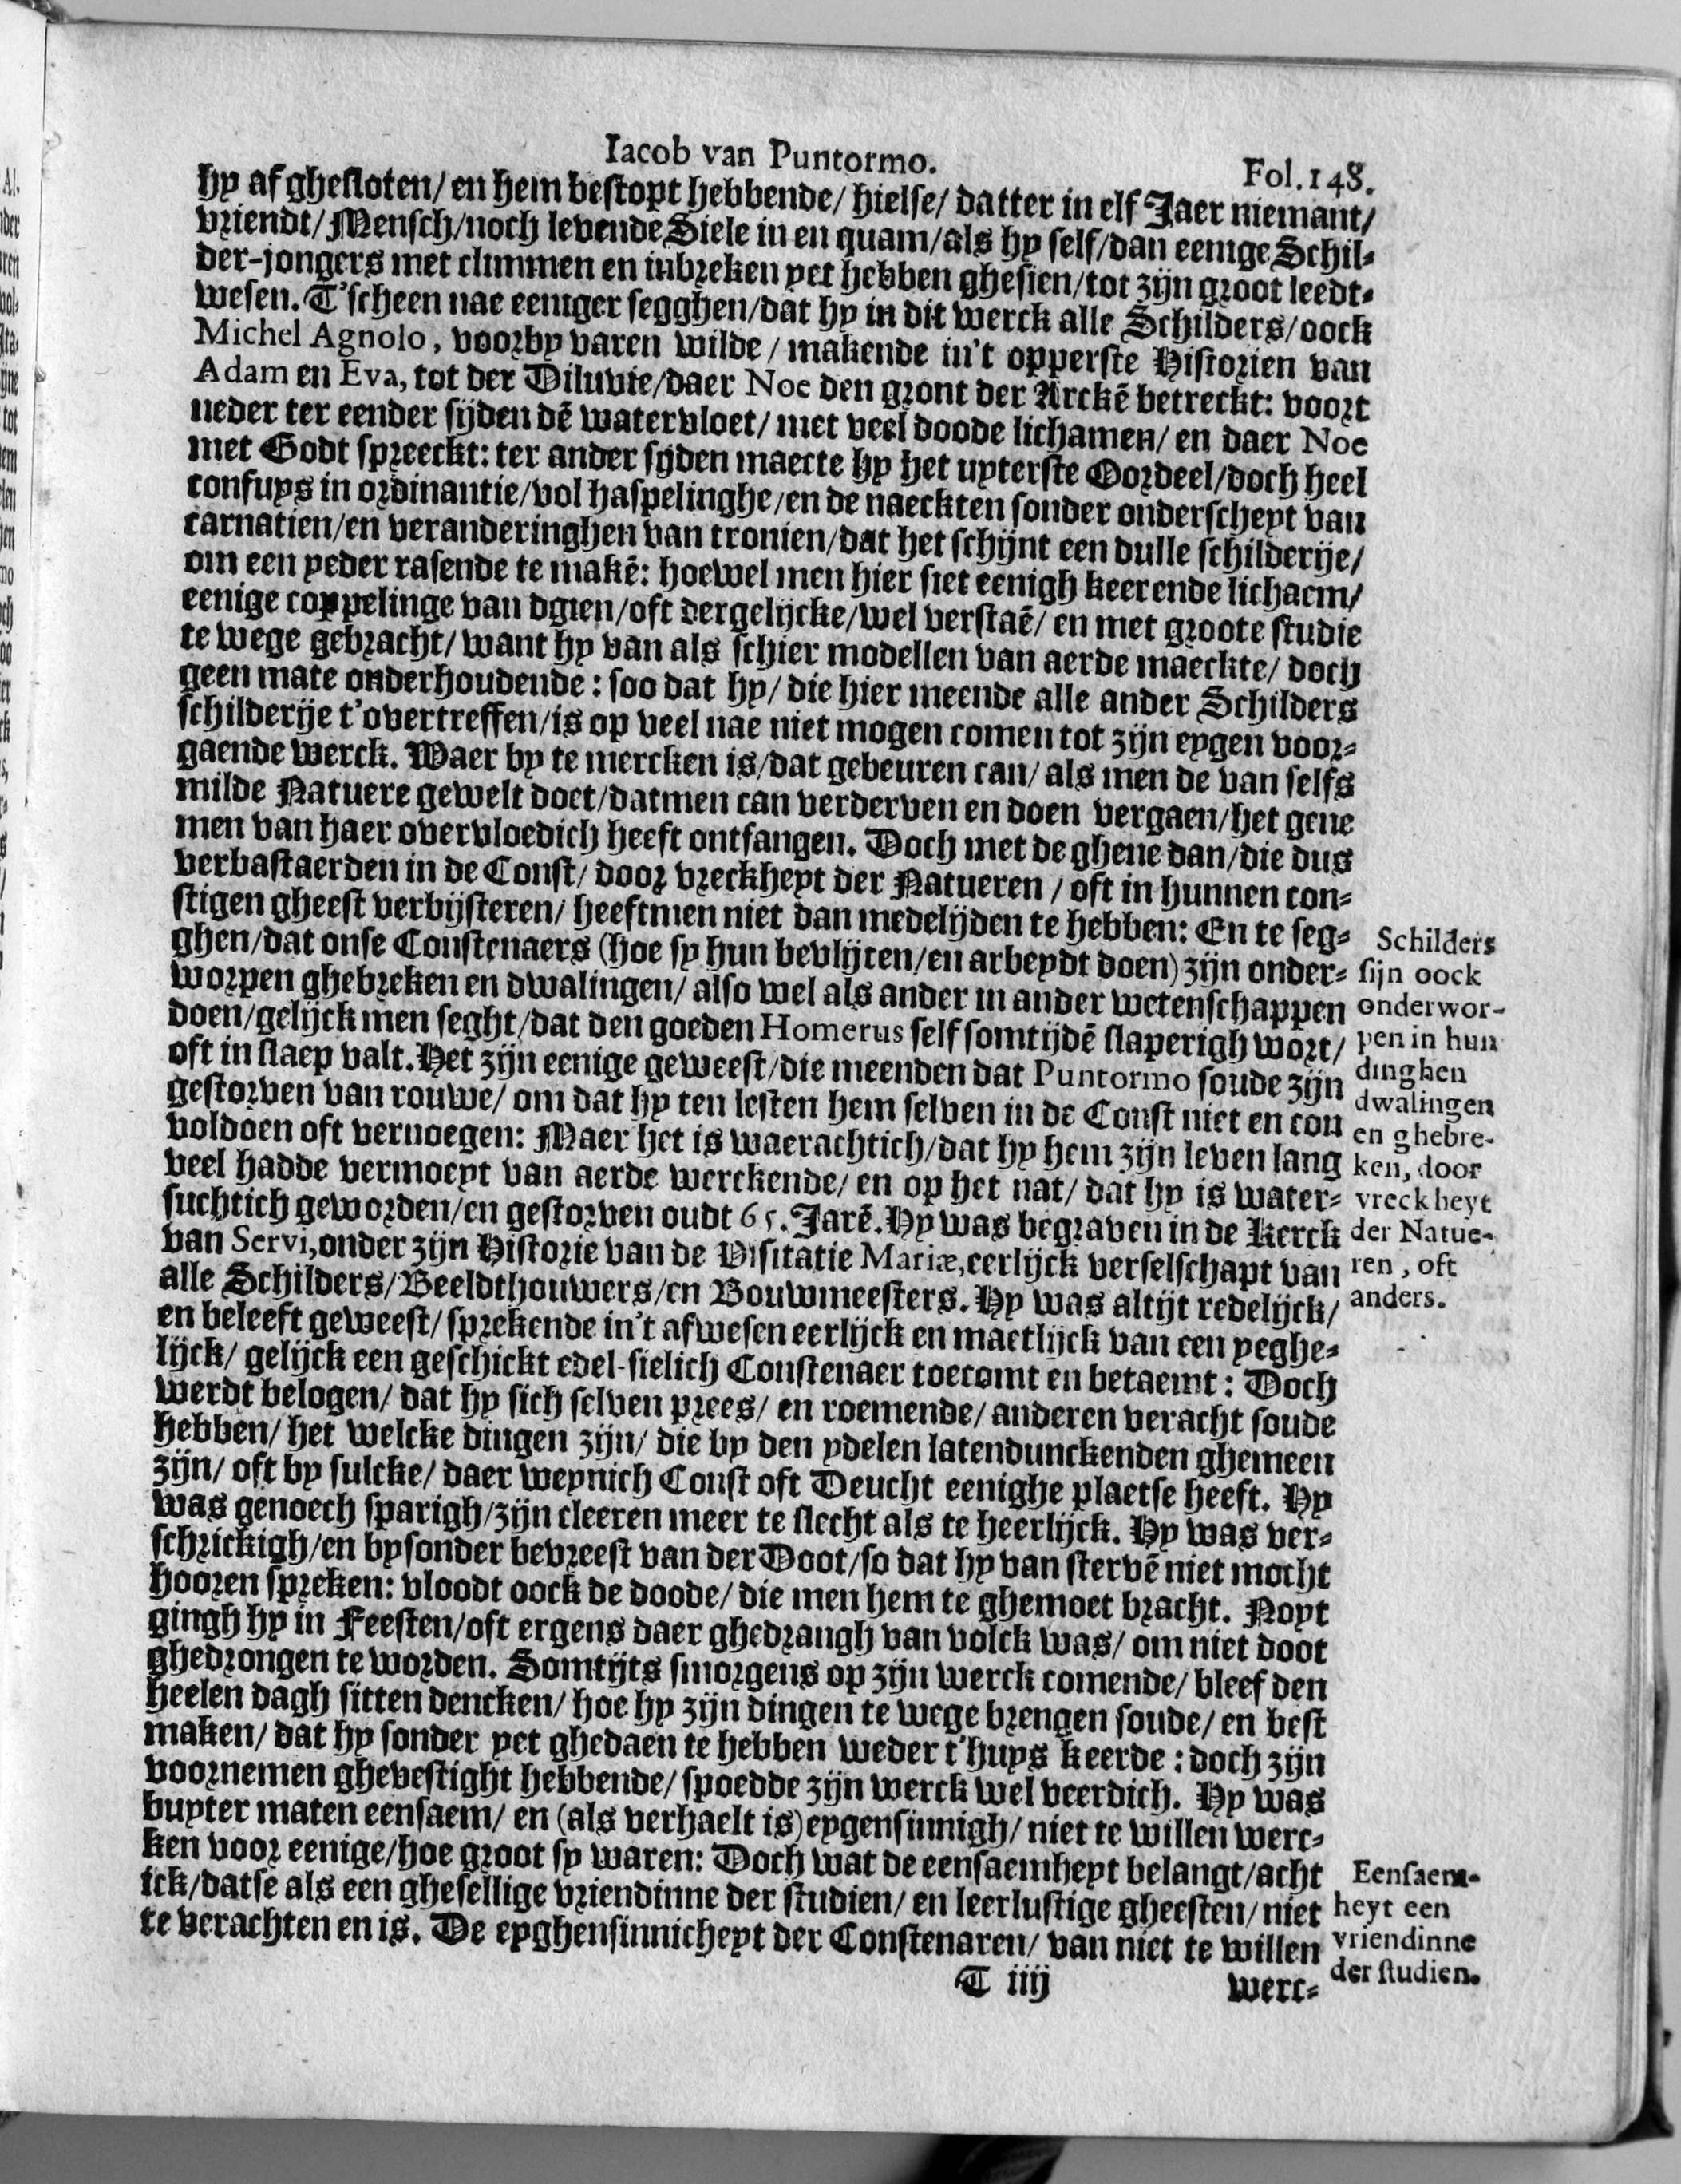 Iacob van Puntormo.
Fol. 148.
hy afghesloten/ en hem bestopt hebbende/ hielse/ datter in elf Jaer niemant/
vriendt/ Mensch/ noch levende Siele in en quam/ als hy self/ dan eenige Schil-
der-jongers met climmen en inbreken yet hebben ghesien/ tot zijn groot leedt-
wesen. T'scheen nae eeniger segghen/ dat hy in dit werck alle Schilders/ oock
Michel Agnolo, voorby varen wilde/ makende in't opperste Historien van
Adam en Eva, tot der Diluvie/ daer Noe den gront der Arckē betreckt: voort
neder ter eender sijden dē watervloet/ met veel doode lichamen/ en daer Noe
met Godt spreeckt: ter ander sijden maecte hy het uyterste Oordeel/ doch heel
confuys in ordinantie/ vol haspelinghe/ en de naeckten sonder onderscheyt van
carnatien/ en veranderinghen van tronien/ dat het schijnt een dulle schilderije/
om een yeder rasende te makē: hoewel men hier siet eenigh keerende lichaem/
eenige coppelinge van dgien/ oft dergelijcke/ wel verstaē/ en met groote studie
te wege gebracht/ want hy van als schier modellen van aerde maeckte/ doch
geen mate onderhoudende: soo dat hy/ die hier meende alle ander Schilders
schilderije t'overtreffen/ is op veel nae niet mogen comen tot zijn eygen voor-
gaende werck. Waer by te mercken is/ dat gebeuren can/ als men de van selfs
milde Natuere gewelt doet/ datmen can verderven en doen vergaen/ het gene
men van haer overvloedich heeft ontfangen. Doch met de ghene dan/ die dus
verbastaerden in de Const/ door vreckheyt der Natueren/ oft in hunnen con-
stigen gheest verbijsteren/ heeftmen niet dan medelijden te hebben: En te seg-
ghen/ dat onse Constenaers (hoe sy hun bevlijten/ en arbeydt doen) zijn onder-
worpen ghebreken en dwalingen/ also wel als ander in ander wetenschappen
doen/ gelijck men seght/ dat den goeden Homerus self somtijdē slaperigh wort/
oft in slaep valt. Het zijn eenige geweest/ die meenden dat Puntormo soude zijn
gestorven van rouwe/ om dat hy ten lesten hem selven in de Const niet en con
voldoen oft vernoegen: Maer het is waerachtich/ dat hy hem zijn leven lang
veel hadde vermoeyt van aerde werckende/ en op het nat/ dat hy is water-
suchtich geworden/ en gestorven oudt 65. Jarē. Hy was begraven in de Kerck
van Servi, onder zijn Historie van de Visitatie Mariæ, eerlijck verselschapt van
alle Schilders/ Beeldthouwers/ en Bouwmeesters. Hy was altijt redelijck/
en beleeft geweest/ sprekende in't afwesen eerlijck en maetlijck van een yeghe-
lijck/ gelijck een geschickt edel-sielich Constenaer toecomt en betaemt: Doch
werdt belogen/ dat hy sich selven prees/ en roemende/ anderen veracht soude
hebben/ het welcke dingen zijn/ die by den ydelen latendunckenden ghemeen
zijn/ oft by sulcke/ daer weynich Const oft Deucht eenighe plaetse heeft. Hy
was genoech sparigh/ zijn cleeren meer te slecht als te heerlijck. Hy was ver-
schrickigh/ en bysonder bevreest van der Doot/ so dat hy van stervē niet mocht
hooren spreken: vloodt oock de doode/ die men hem te ghemoet bracht. Noyt
gingh hy in Feesten/ oft ergens daer ghedrangh van volck was/ om niet doot
ghedrongen te worden. Somtijts smorgens op zijn werck comende/ bleef den
heelen dagh sitten dencken/ hoe hy zijn dingen te wege brengen soude/ en best
maken/ dat hy sonder yet ghedaen te hebben weder t'huys keerde: doch zijn
voornemen ghevestight hebbende/ spoedde zijn werck wel veerdich. Hy was
buyter maten eensaem/ en (als verhaelt is) eygensinnigh/ niet te willen werc-
ken voor eenige/ hoe groot sy waren: Doch wat de eensaemheyt belangt/ acht
ick/ datse als een ghesellige vriendinne der studien/ en leerlustige gheesten/ niet
te verachten en is. De eyghensinnicheyt der Constenaren/ van niet te willen
T iiij
werc-
Schilders
sijn oock
onderwor-
pen in hun
dinghen
dwalingen
en ghebre-
ken, door
vreckheyt
der Natue-
ren, oft
anders.
Eensaem-
heyt een
vriendinne
der studien.